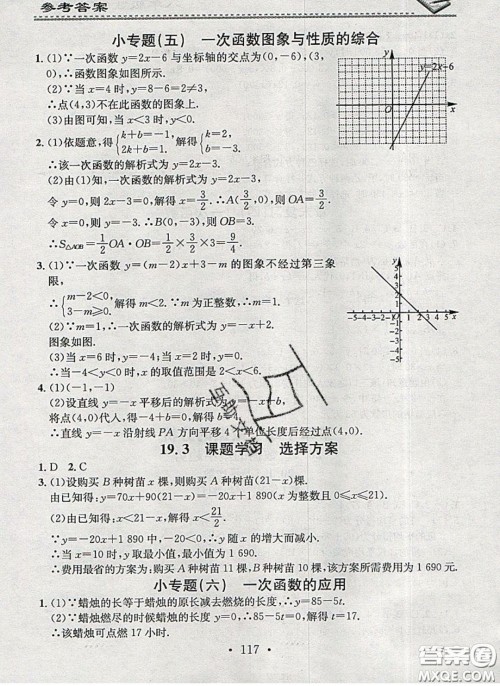 参考答案
小专题(五)　一次函数图象与性质的综合
1. (1)∵一次函数 y=2x−6 与坐标轴的交点为(0,−6),(3,
0),∴函数图象如图所示.
(2)∵当 x=4时,y=8−6=2≠3,
∴点(4,3)不在此函数的图象上.
(3)由图可知,当 x<3时,y<0.
y=2x−6
2. (1)依题意,得{k+b=−1, 2k+b=1. 解得{k=2, b=−3.
∴该一次函数的解析式为 y=2x−3.
(2)由(1)知,一次函数的解析式为 y=2x−3,
令 y=0,则 2x−3=0,解得 x=3/2.∴A(3/2,0),则 OA=3/2.
令 x=0,则 y=−3.∴B(0,−3),则 OB=3.
∴S△AOB=1/2 OA·OB=1/2×3/2×3=9/4.
3. (1)∵一次函数 y=(m−2)x+3−m 的图象不经过第三象
限,
∴{m−2<0, 3−m≥0. 解得 m<2.∵m 为正整数,∴m=1.
(2)∵m=1,∴一次函数的解析式为 y=−x+2.
图象如图.
(3)当 x=6时,y=−4,当 x=2时,y=0,
∴当−4<y<0时,x 的取值范围是 2<x<6.
4. (1)(−1,−1)
(2)设直线 y=−x 平移后的解析式为 y=−x+b,
将点(4,0)代入,得−4+b=0,解得 b=4.
∴直线 y=−x 沿射线 PA 方向平移 4 个单位长度后经过点(4,0).
19.3　课题学习　选择方案
1. D　2. C
3. (1)设购买 B 种树苗 x 棵,则购买 A 种树苗(21−x)棵.
由已知得:y=70x+90(21−x)=−20x+1 890(x 为整数且 0≤x≤21).
(2)由已知得:x<21−x,解得 x<21/2.
∵y=−20x+1 890中,−20<0,∴y 随 x 的增大而减小.
∴当 x=10时,y 最小,最小值为 1 690.
∴费用最省的方案为:购买 A 种树苗 11棵,B 种树苗 10棵,该方案所需费用为 1 690元.
小专题(六)　一次函数的应用
1. (1)∵蜡烛的长等于蜡烛的原长减去燃烧的长度,∴y=85−5t.
(2)∵蜡烛燃尽的时候蜡烛的长度 y=0,∴85−5t=0.解得 t=17.
∴该蜡烛可点燃 17小时.
· 117 ·
答案圈
MXQE.COM